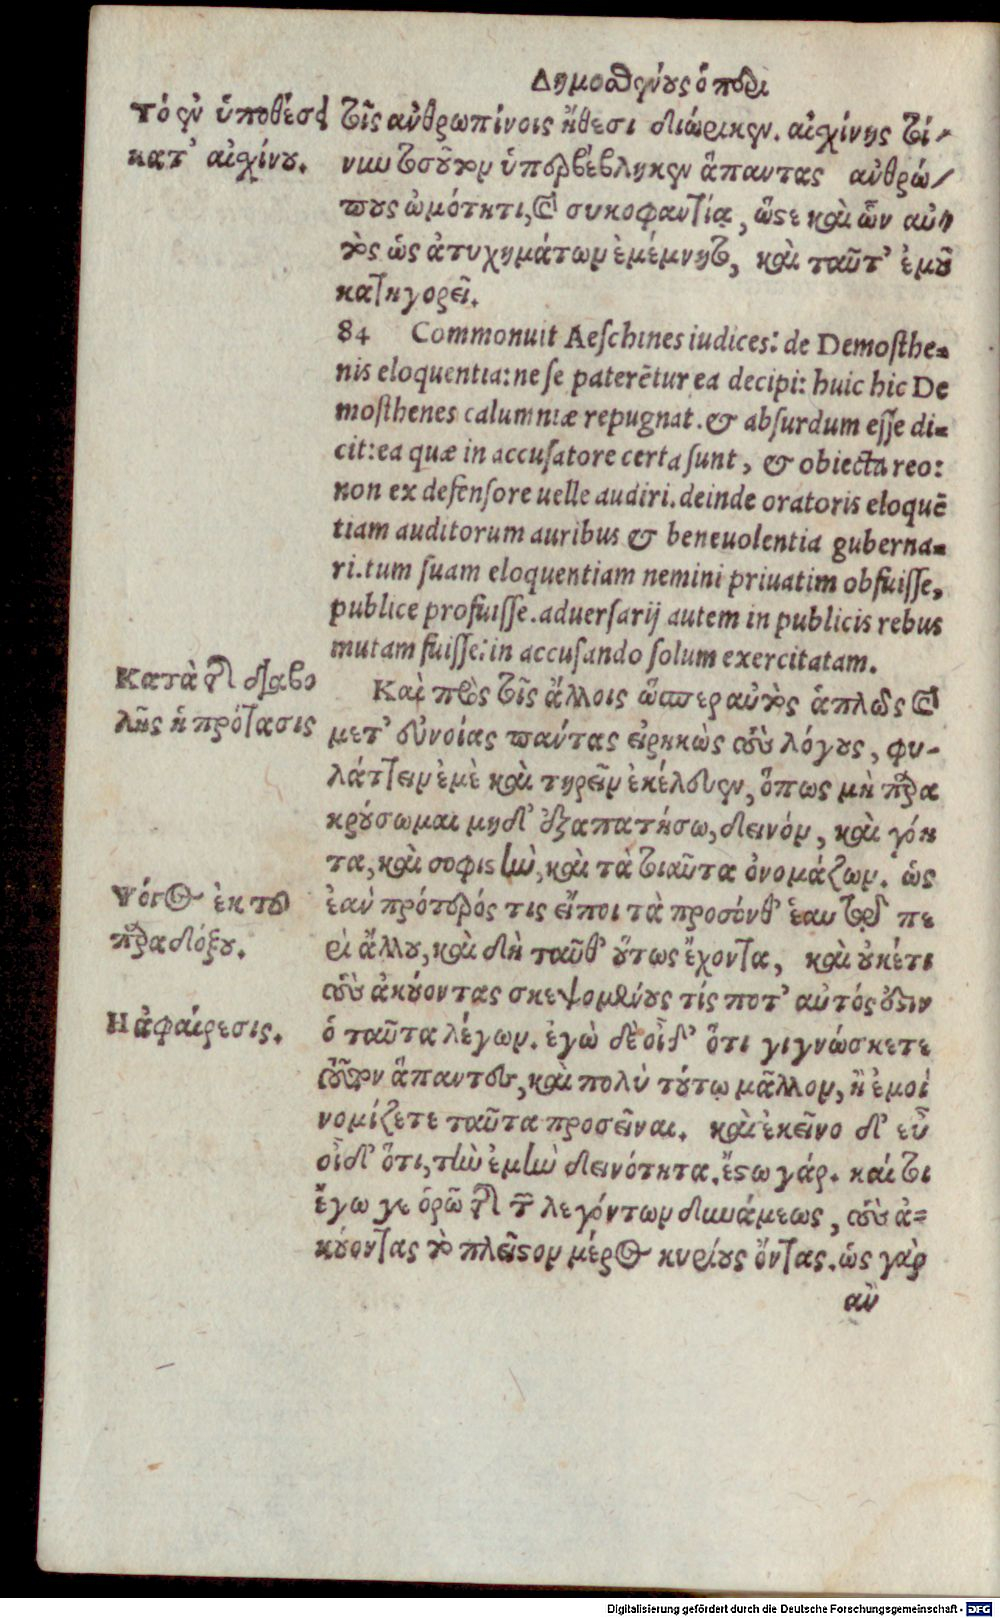 Δημοσθένους ὁ περὶ
Τὸ ἐν ὑποθέσει
κατ' αἰσχίνου.
τοῖς ἀνθρωπίνοις ἤθεσι διώρικεν. αἰσχίνης τοί-
νυν τοσοῦτον ὑπερβέβληκεν ἅπαντας ἀνθρώ-
πους ὠμότητι, καὶ συκοφαντίᾳ, ὥστε καὶ ὧν αὐ-
τὸς ὡς ἀτυχημάτων ἐμέμνητο, καὶ ταῦτ' ἐμοῦ
κατηγορεῖ.
84 Commonuit Aeſchines iudices: de Demoſthe=
nis eloquentia: ne ſe paterētur ea decipi: huic hic De
moſthenes calumniæ repugnat. & abſurdum eſſe di=
cit: ea quæ in accuſatore certa ſunt, & obiecta reo:
non ex defenſore uelle audiri. deinde oratoris eloquē
tiam auditorum auribus & beneuolentia guberna=
ri. tum ſuam eloquentiam nemini priuatim obfuiſſe,
publice profuiſſe. aduerſarij autem in publicis rebus
mutam fuiſſe: in accuſando ſolum exercitatam.
Κατὰ τῆς διαβο
λῆς ἡ πρότασις
Καὶ πρὸς τοῖς ἄλλοις ὥσπερ αὐτὸς ἁπλῶς καὶ
μετ' εὐνοίας πάντας εἰρηκὼς τοὺς λόγους, φυ-
λάττειν ἐμὲ καὶ τηρεῖν ἐκέλευεν, ὅπως μὴ παρα
κρούσωμαι μηδ' ἐξαπατήσω, δεινὸν, καὶ γόη
τα, καὶ σοφιστὴν, καὶ τὰ τοιαῦτα ὀνομάζων. ὡς
Ψόγος ἐκ τοῦ
παραδόξου.
ἐὰν πρότερός τις εἴποι τὰ προσόνθ' ἑαυτῷ πε
ρὶ ἄλλου, καὶ δὴ ταῦθ' οὕτως ἔχοντα, καὶ οὐκέτι
τοὺς ἀκούοντας σκεψομένους τίς ποτ' αὐτός ἐστιν
Η ἀφαίρεσις.
ὁ ταῦτα λέγων. ἐγὼ δὲ οἶδ' ὅτι γιγνώσκετε
τοῦτον ἅπαντες, καὶ πολὺ τούτῳ μᾶλλον, ἢ ἐμοί
νομίζετε ταῦτα προσεῖναι. καὶ ἐκεῖνο δ' εὖ
οἶδ' ὅτι, τὴν ἐμὴν δεινότητα. ἔστω γάρ. καί τοι
ἔγω γε ὁρῶ τῆς τῶν λεγόντων δυνάμεως, τοὺς ἀ=
κούοντας τὸ πλεῖστον μέρος κυρίους ὄντας. ὡς γὰρ
αὖ
Digitalisierung gefördert durch die Deutsche Forschungsgemeinschaft - DFG